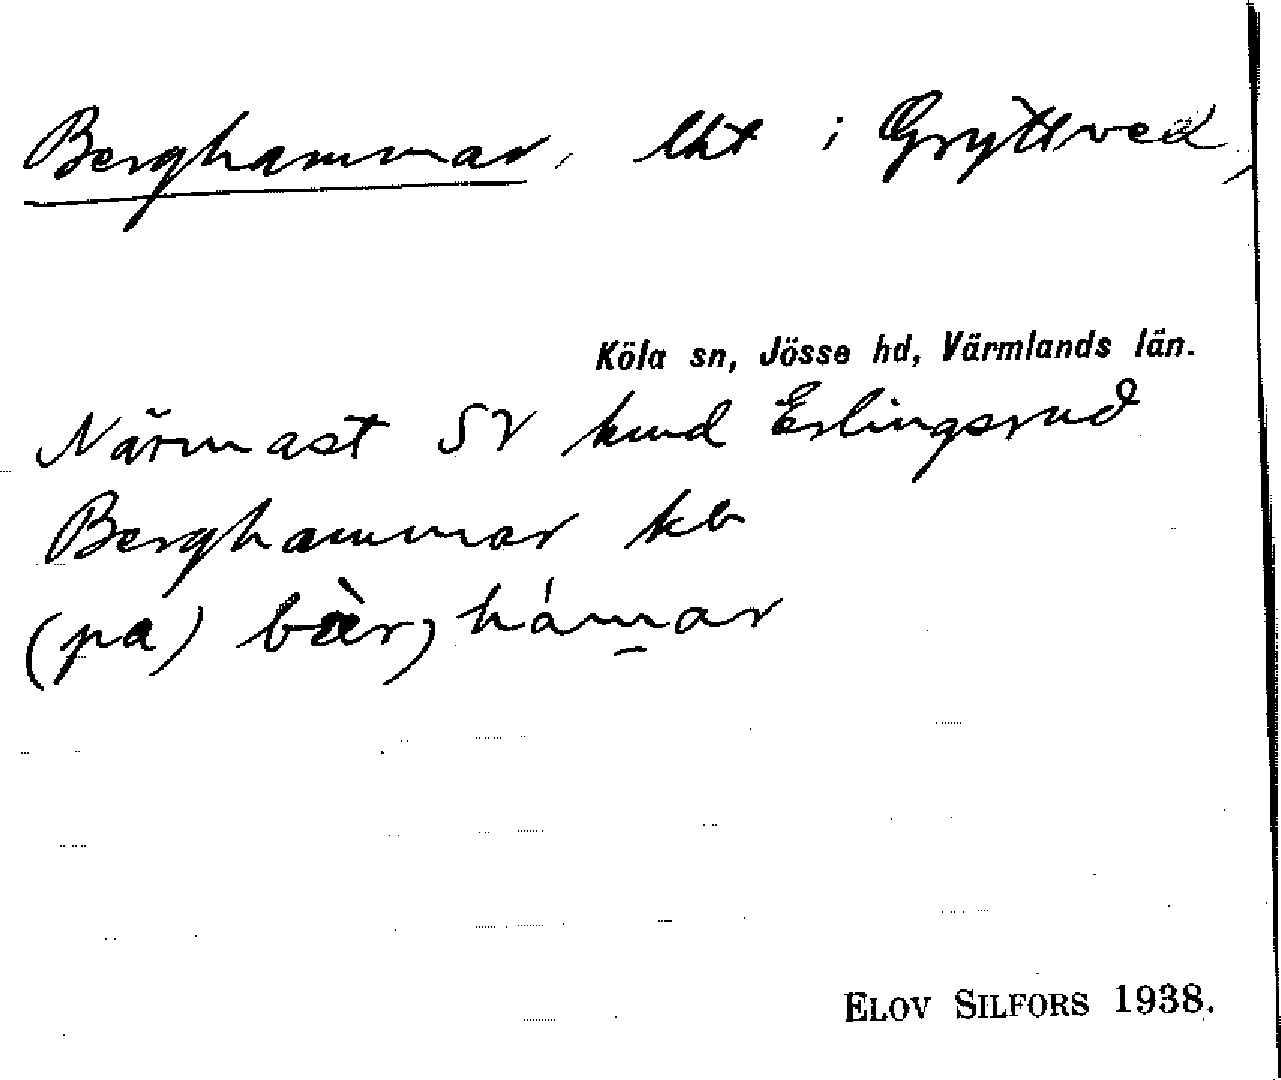 Berghammar, lht i Gryttved,
Köla sn, Jösse hd, Värmlands län.
Närmast SV kund Erlingsrud
Berghammar kb
(pa) bær, hámar
ELOV SILFORS 1938.